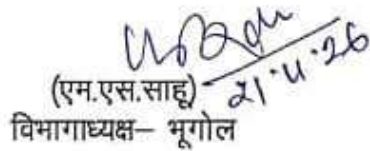 21.4.26
(एम.एस.साहू)
विभागाध्यक्ष– भूगोल